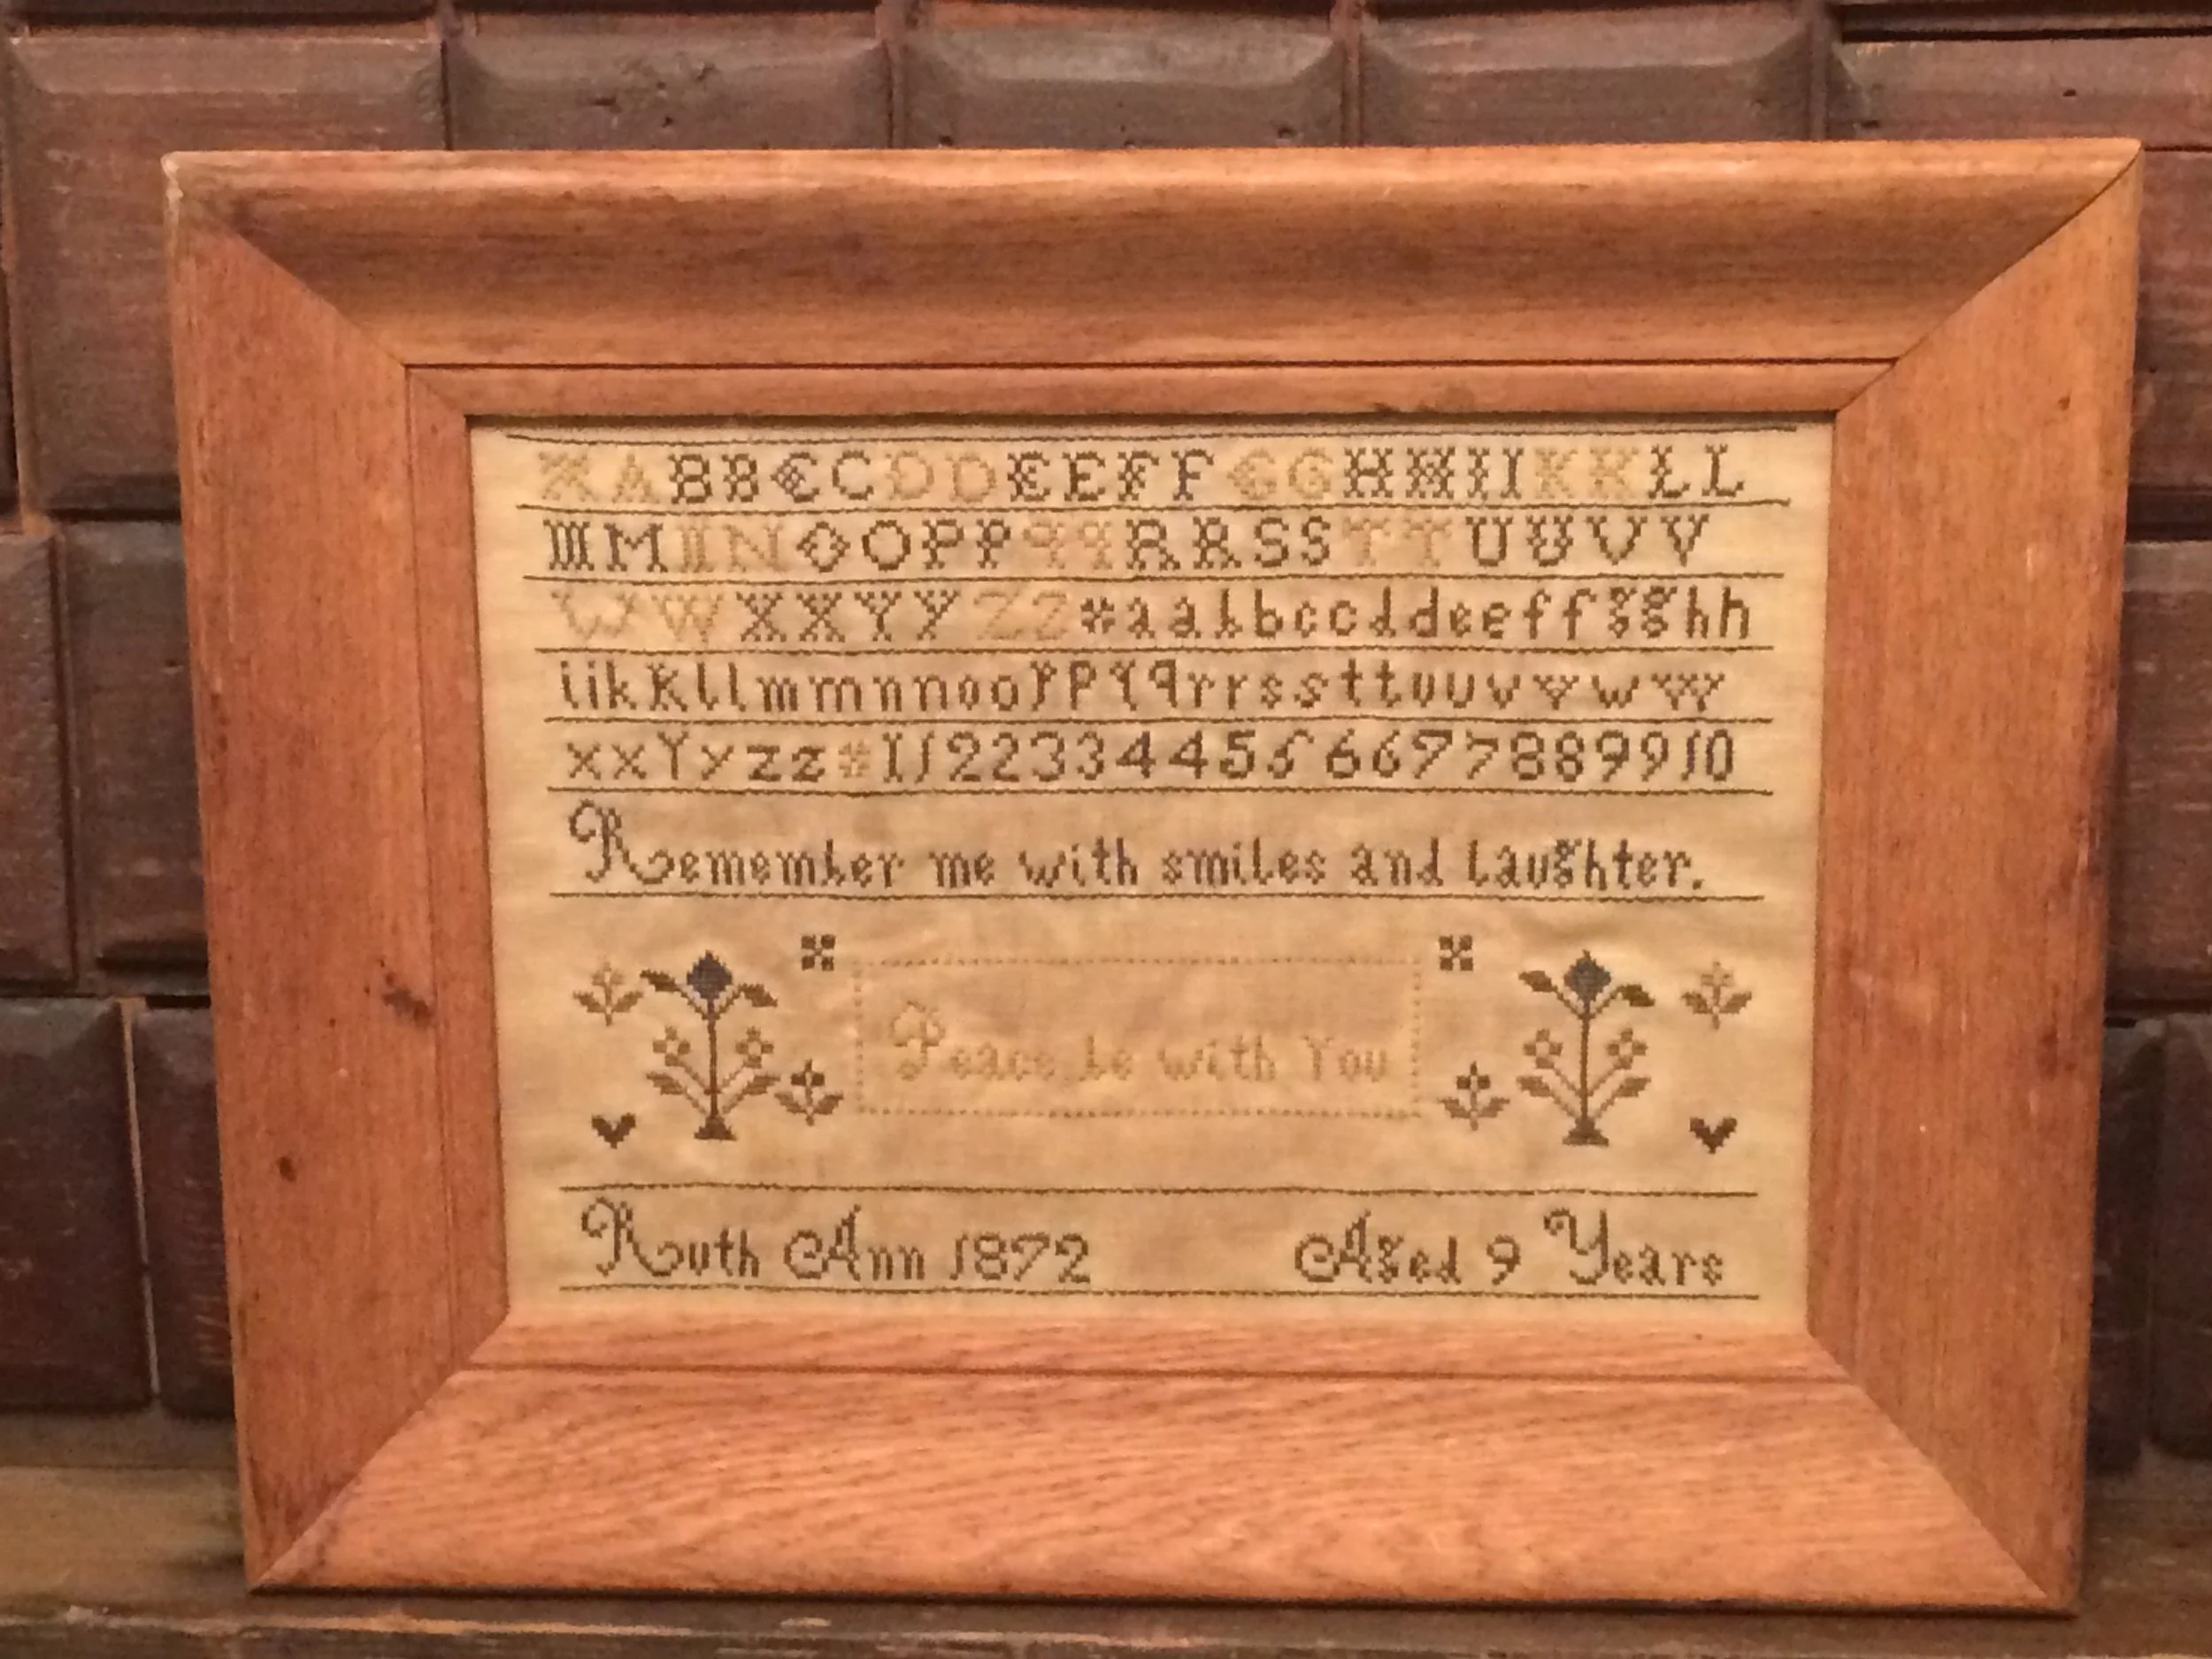 AABBCCDDEEFFGGHHIIKKLL
MMNNOOPPqqRRSSTTUUVV
WWXXYYZz*aabbccddeeffgghh
iikkllmmnnooppqqrrssttuuvvww
xxYyzz*1122334455667788991O
Remember me with smiles and laughter.
Peace be with You
Ruth Ann 1872 Aged 9 Years